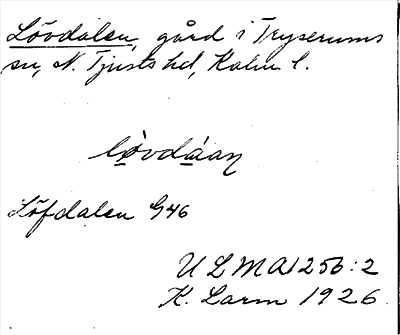 Lövdalen, gård i Tryserums
sn, N. Tjusts hd, Kalm l.
lòvdáan
Löfdalen G46
ULMA 1256:2
K. Larm 1926.